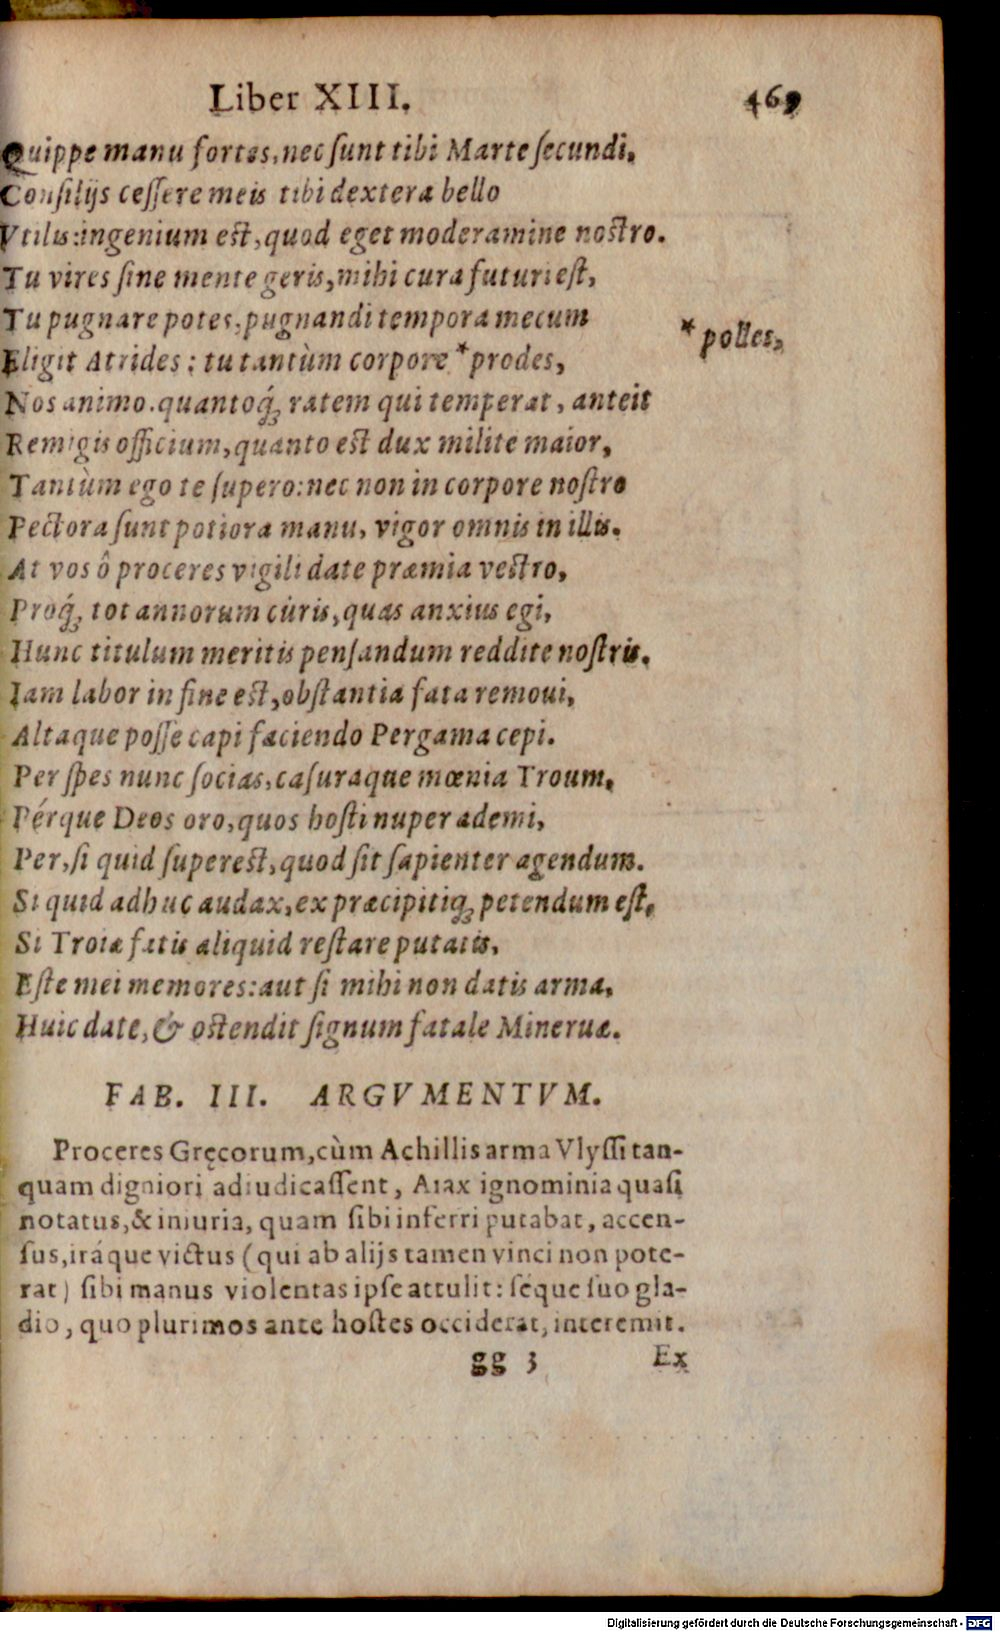 Liber XIII. 469
Quippe manu fortes, nec sunt tibi Marte secundi,
Consilijs cessere meis tibi dextera bello
Vtilis: ingenium est, quod eget moderamine nostro.
Tu vires sine mente geris, mihi cura futuri est,
Tu pugnare potes, pugnandi tempora mecum
Eligit Atrides; tu tantùm corpore *prodes,
* polles,
Nos animo. quantoq́; ratem qui temperat, anteit
Remigis officium, quanto est dux milite maior,
Tantùm ego te supero: nec non in corpore nostro
Pectora sunt potiora manu, vigor omnis in illis.
At vos ô proceres vigili date præmia vestro,
Proq́; tot annorum curis, quas anxius egi,
Hunc titulum meritis pensandum reddite nostris.
Iam labor in fine est, obstantia fata remoui,
Altaque posse capi faciendo Pergama cepi.
Per spes nunc socias, casuraque mœnia Troum,
Pérque Deos oro, quos hosti nuper ademi,
Per, si quid superest, quod sit sapienter agendum.
Si quid adhuc audax, ex præcipitiq; petendum est,
Si Troiæ fatis aliquid restare putatis,
Este mei memores: aut si mihi non datis arma,
Huic date, & ostendit signum fatale Mineruæ.
FAB. III. ARGVMENTVM.
Proceres Gręcorum, cùm Achillis arma Vlyssi tan-
quam digniori adiudicassent, Aiax ignominia quasi
notatus, & iniuria, quam sibi inferri putabat, accen-
sus, iráque victus (qui ab alijs tamen vinci non pote-
rat) sibi manus violentas ipse attulit: séque suo gla-
dio, quo plurimos ante hostes occiderat, interemit.
gg 3 Ex
Digitalisierung gefördert durch die Deutsche Forschungsgemeinschaft - DFG